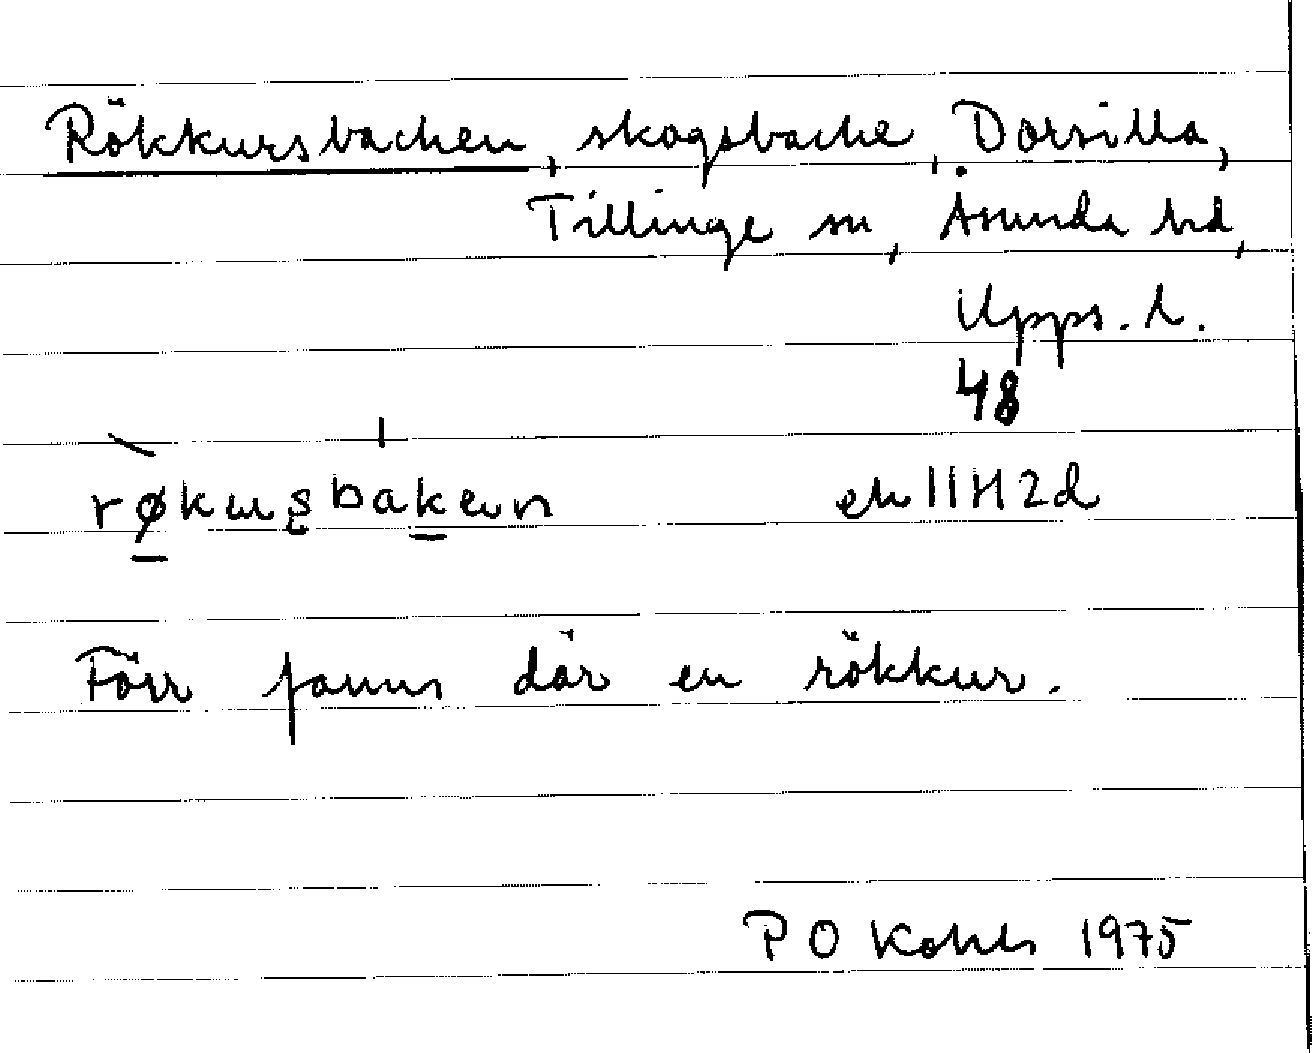 Rökkursbacken, skogsbacke, Dorsilla,
Tillinge sn, Åsunda hd,
Upps. l.
48
røkuʂbaken ek 11H2d
Förr fanns där en rökkur.
P O 1975